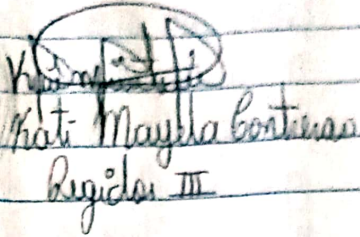 Kati Maylla Contreras
Regidor III